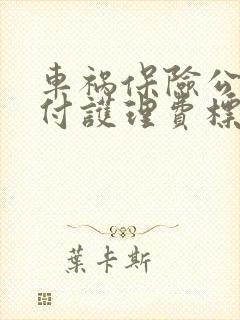 車禍保險公
付護理費標
葉卡斯